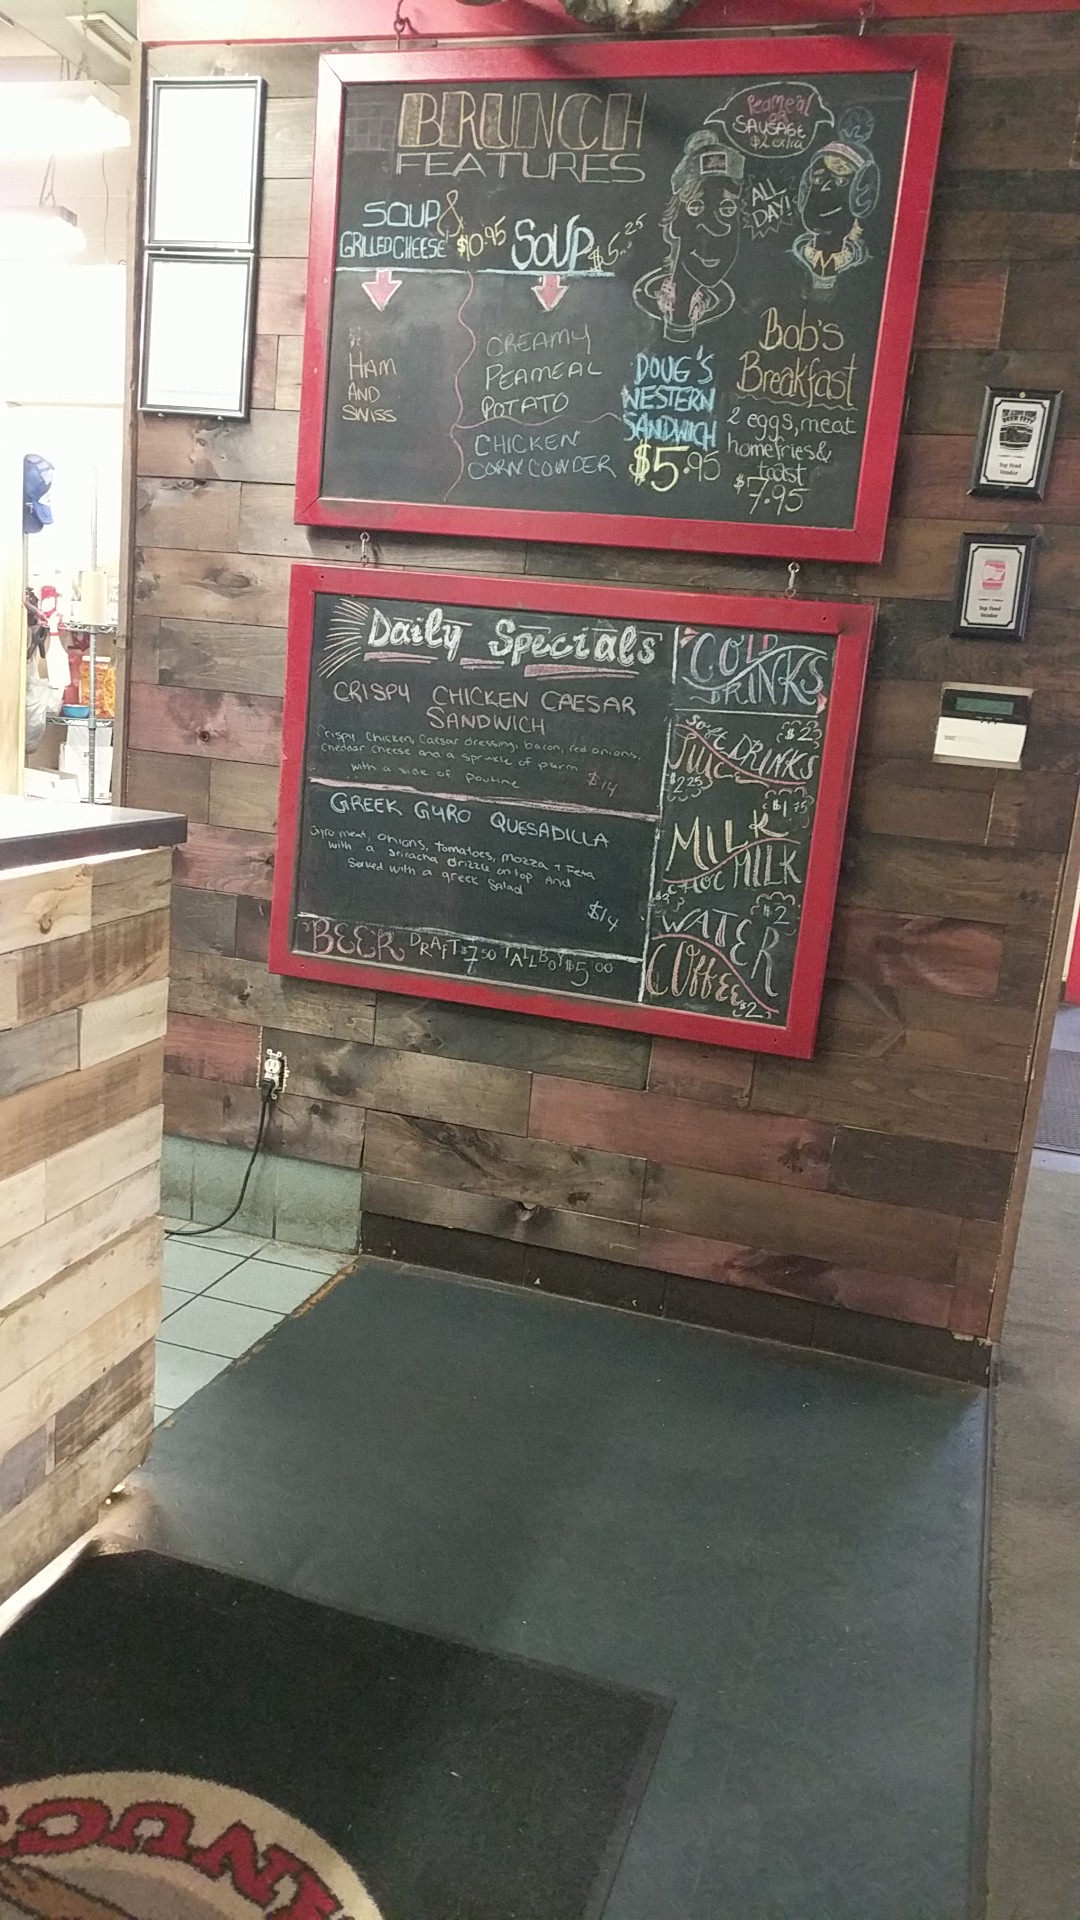 BRUNCH
FEATURES
Peameal
OR
SAUSAGE
$2 extra
ALL
DAY!
SOUP &
GRILLED CHEESE $10.95
HAM
AND
SWISS
SOUP $5.25
CREAMY
PEAMEAL
POTATO
CHICKEN
CORN COWDER
DOUG'S
WESTERN
SANDWICH
$5.95
Bob's
Breakfast
2 eggs, meat
homefries &
toast
$7.95
Top Food
Vendor
Top Food
Vendor
Daily Specials
CRISPY CHICKEN CAESAR
SANDWICH
Crispy Chicken, Caesar dressing, bacon, red onions,
cheddar cheese and a sprinkle of parm
with a side of poutine $14
GREEK GYRO QUESADILLA
Gyro meat, onions, tomatoes, mozza + Feta
with a Sriracha drizzle on top. And
Served with a greek Salad
$14
BEER DRAFT $7.50 TALLBOY $5.00
COLD
DRINKS
Soft DRINKS $2
JUICE
$2.25
MILK $1.75
CHOC MILK
WATER $2
COFFEE $2